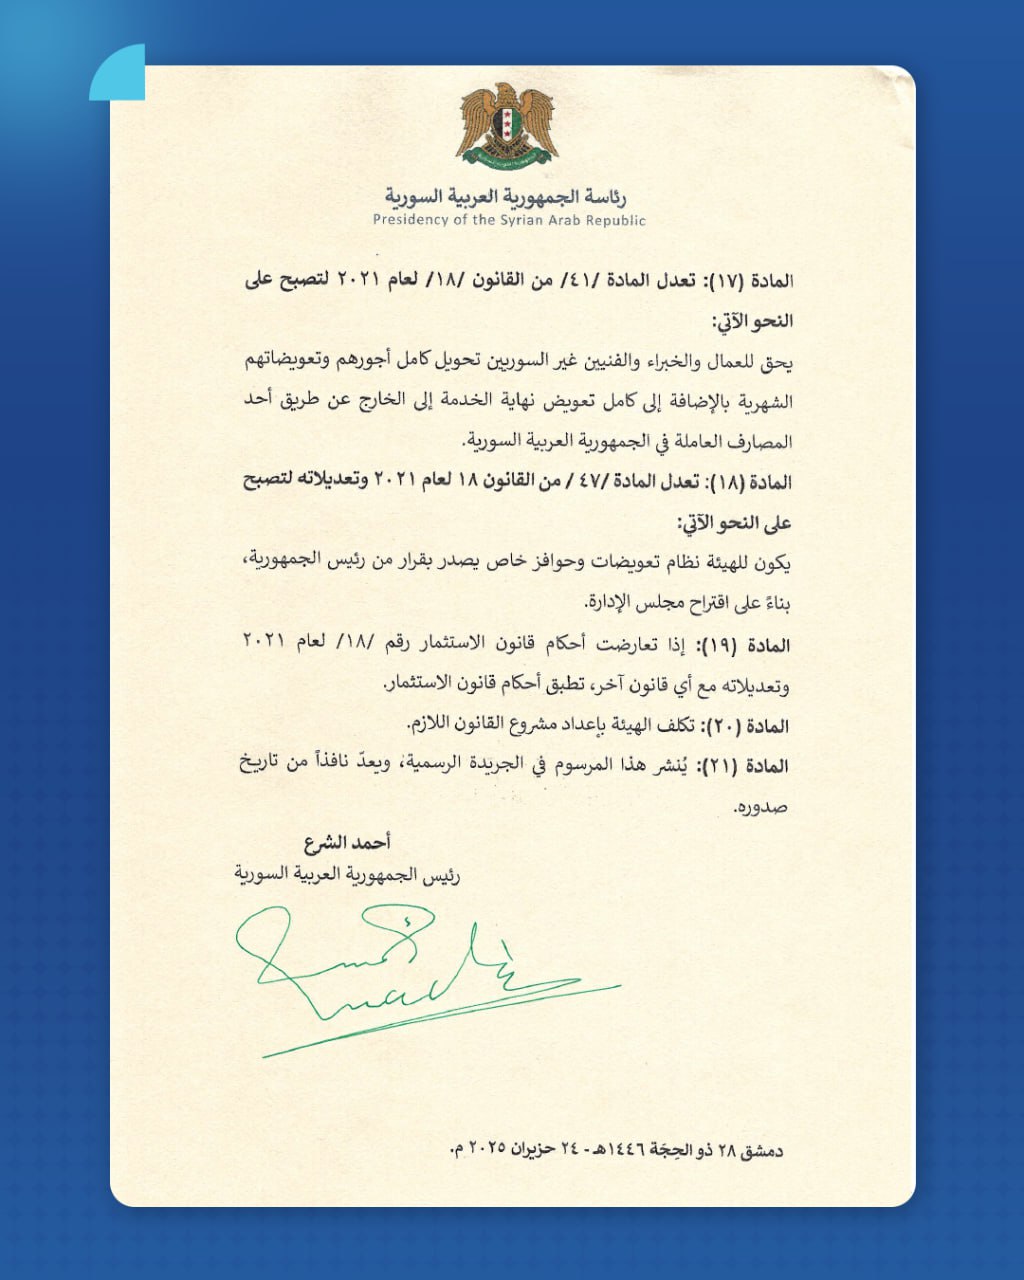 رئاسة الجمهورية العربية السورية
Presidency of the Syrian Arab Republic
المادة (١٧): تعدل المادة /٤١/ من القانون /١٨/ لعام ٢٠٢١ لتصبح على
النحو الآتي:
يحق للعمال والخبراء والفنيين غير السوريين تحويل كامل أجورهم وتعويضاتهم
الشهرية بالإضافة إلى كامل تعويض نهاية الخدمة إلى الخارج عن طريق أحد
المصارف العاملة في الجمهورية العربية السورية.
المادة (١٨): تعدل المادة /٤٧ / من القانون ١٨ لعام ٢٠٢١ وتعديلاته لتصبح
على النحو الآتي:
يكون للهيئة نظام تعويضات وحوافز خاص يصدر بقرار من رئيس الجمهورية،
بناءً على اقتراح مجلس الإدارة.
المادة (١٩): إذا تعارضت أحكام قانون الاستثمار رقم /١٨/ لعام ٢٠٢١
وتعديلاته مع أي قانون آخر، تطبق أحكام قانون الاستثمار.
المادة (٢٠): تكلف الهيئة بإعداد مشروع القانون اللازم.
المادة (٢١): يُنشر هذا المرسوم في الجريدة الرسمية، ويعدّ نافذاً من تاريخ
صدوره.
أحمد الشرع
رئيس الجمهورية العربية السورية
دمشق ٢٨ ذو الحِجَة ١٤٤٦هـ - ٢٤ حزيران ٢٠٢٥ م.